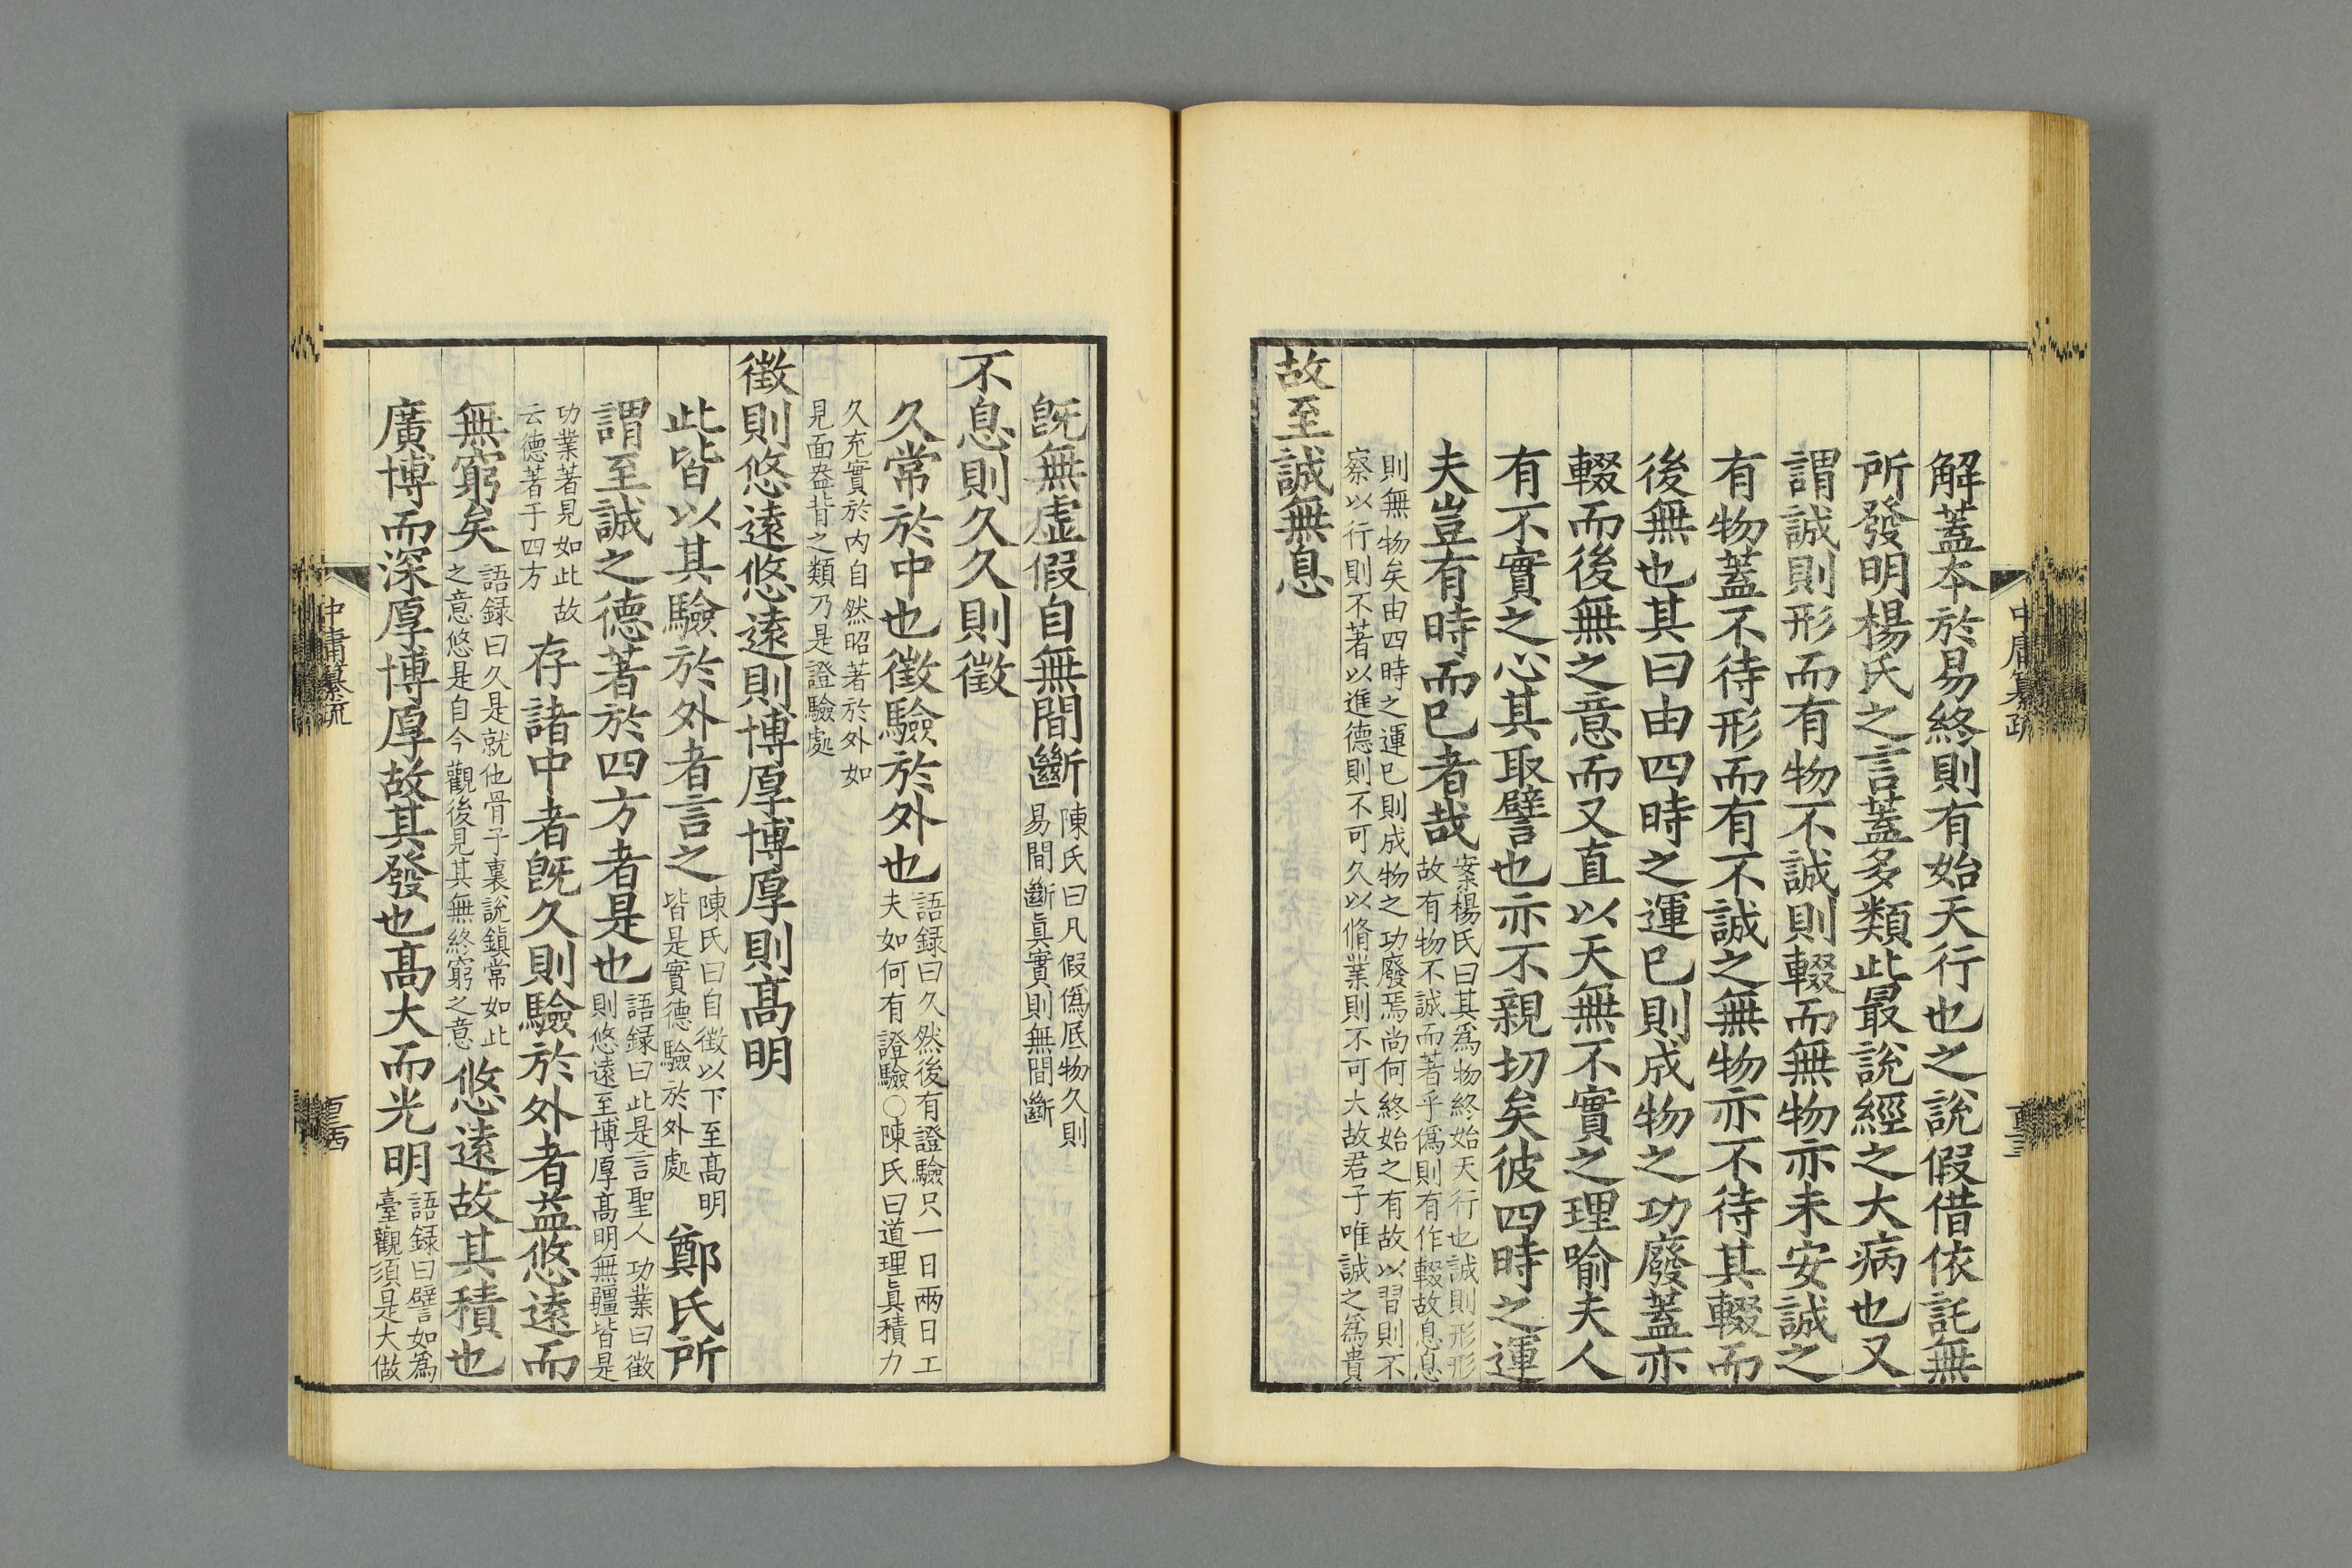 解蓋本於易終則有始天行也之說假借依託無
所發明楊氏之言蓋多類此最說經之大病也又
謂誠則形而有物不誠則輟而無物亦未安誠之
有物蓋不待形而有不誠之無物亦不待其輟而
後無也其曰由四時之運已則成物之功廢蓋亦
輟而後無之意而又直以天無不實之理喻夫人
有不實之心其取譬也亦不親切矣彼四時之運
夫豈有時而已者哉
案楊氏曰其爲物終始天行也誠則形形
故有物不誠而著乎僞則有作輟故息息
則無物矣由四時之運已則成物之功廢焉尚何終始之有故以習則不
察以行則不著以進德則不可久以脩業則不可大故君子唯誠之爲貴
故至誠無息
既無虛假自無間斷
陳氏曰凡假僞厎物久則
易間斷眞實則無間斷
不息則久久則徵
久常於中也徵驗於外也
語録曰久然後有證驗只一日兩日工
夫如何有證驗○陳氏曰道理眞積力
久充實於内自然昭著於外如
見面盎背之類乃是證驗處
徵則悠遠悠遠則博厚博厚則髙明
此皆以其驗於外者言之
陳氏曰自徵以下至髙明
皆是實德驗於外處
鄭氏所
謂至誠之德著於四方者是也
語録曰此是言聖人功業曰徵
則悠遠至博厚髙明無疆皆是
功業著見如此故
云德著于四方
存諸中者既久則驗於外者益悠遠而
無窮矣
語録曰久是就他骨子裏說鎭常如此
之意悠是自今觀後見其無終窮之意
悠遠故其積也
廣博而深厚博厚故其發也髙大而光明
語録曰譬如爲
臺觀須是大做
中庸纂疏